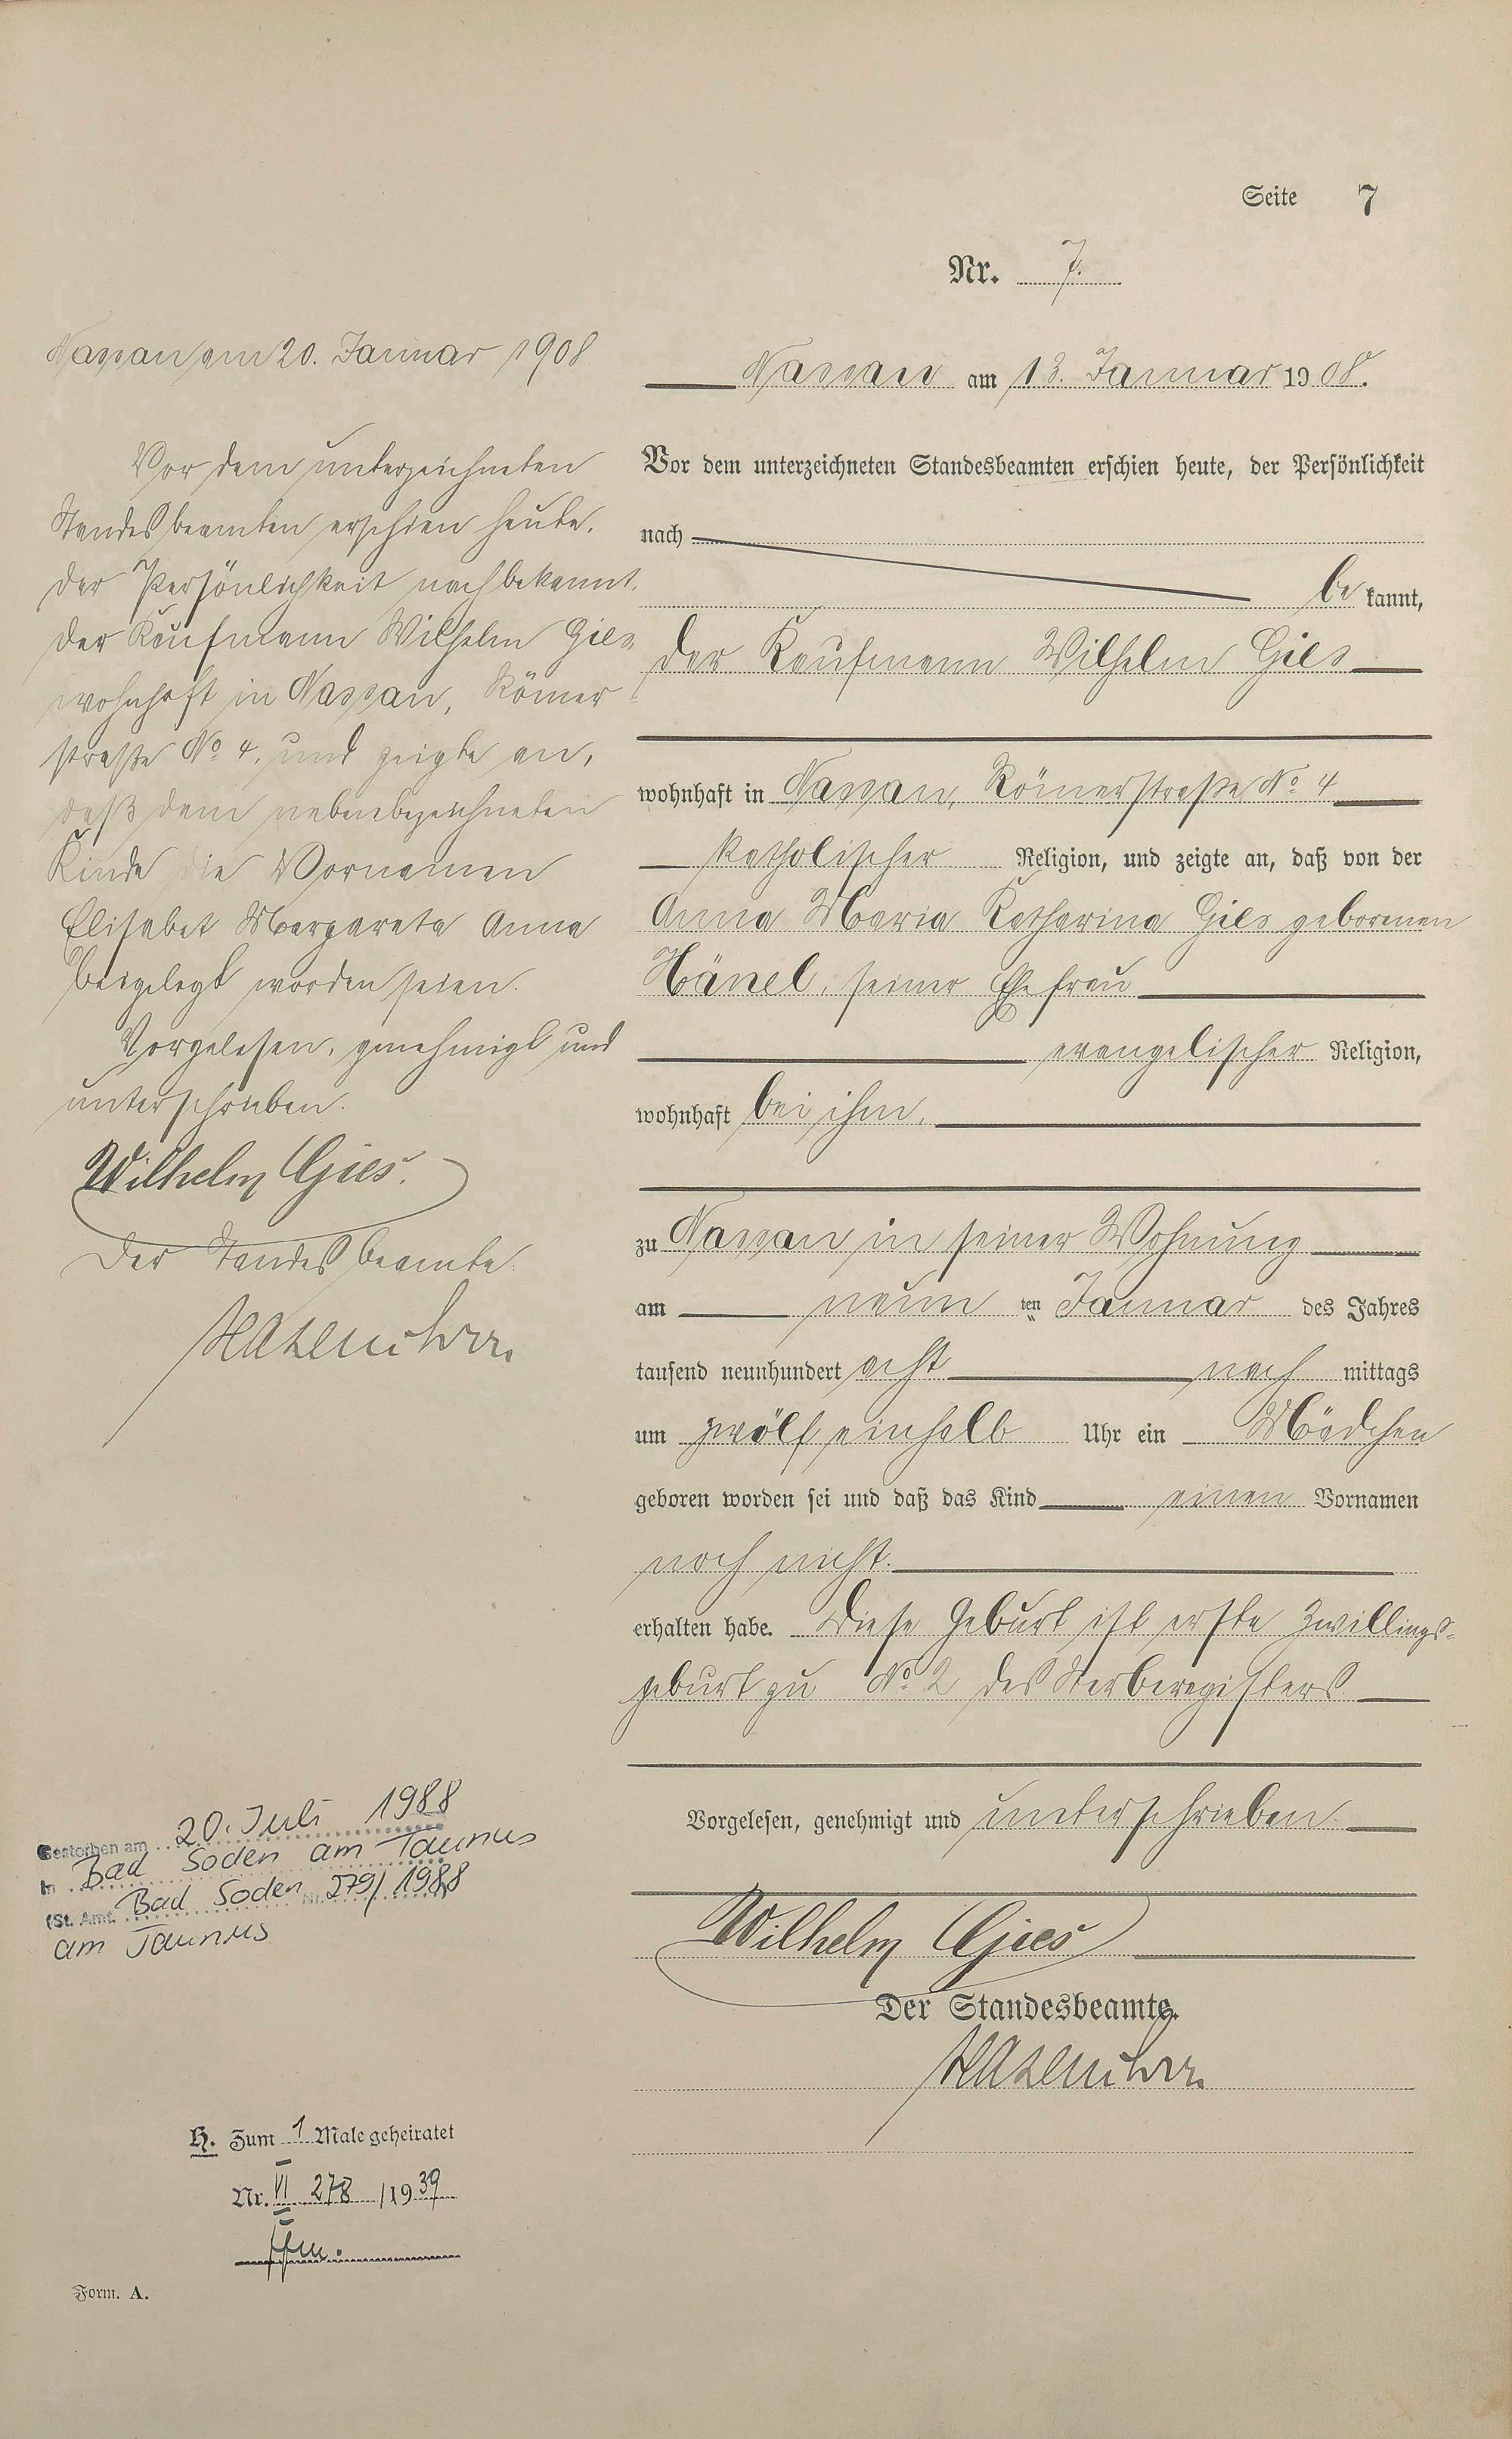 Seite 7
Nr. 7.
Nassau am 13. Januar 1908.
Vor dem unterzeichneten Standesbeamten erschien heute, der Persönlichkeit
nach
be kannt,
der Kaufmann Wilhelm Gies
wohnhaft in Nassau, Römerstraße No 4
katholischer Religion, und zeigte an, daß von der
Anna Maria Katharina Gies geborenen
Hänel, seiner Ehefrau
evangelischer Religion,
wohnhaft bei ihm,
zu Nassau in seiner Wohnung
am neun ten Januar des Jahres
tausend neunhundert acht nach mittags
um zwölf einhalb Uhr ein Mädchen
geboren worden sei und daß das Kind einen Vornamen
noch nicht
erhalten habe. Diese Geburt ist erste Zwillings-
geburt zu No 2 des Sterberegisters
Vorgelesen, genehmigt und unterschrieben
Wilhelm Gies
Der Standesbeamte.
Nassau am 20. Januar 1908
Vor dem unterzeichneten
Standesbeamten erschien heute,
der Persönlichkeit nach bekannt,
der Kaufmann Wilhelm Gies
wohnhaft in Nassau, Römer-
straße No 4, und zeigte an,
daß dem nebenbezeichneten
Kinde die Vornamen
Elisabet Margareta Anna
beigelegt worden seien.
Vorgelesen, genehmigt und
unterschrieben.
Wilhelm Gies.
Der Standesbeamte.
Gestorben am 20. Juli 1988
in Bad Soden am Taunus
(St. Amt. Bad Soden Nr. 279/1988
am Taunus
H. Zum 1 Male geheiratet
Nr. VI 278 /1939
Ffm.
Form. A.